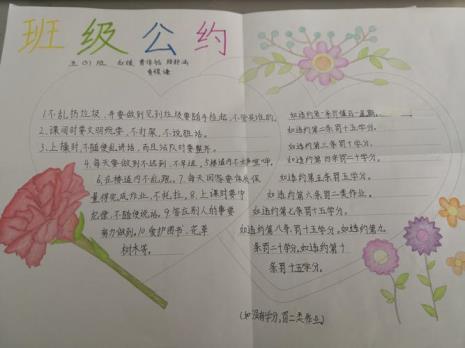 班级公约
五(3)班
1.不乱扔垃圾,并要做到见到垃圾要随手捡起,不管是谁的。
2.课间时要文明玩耍,不打架,不说脏话。
3.上操时,不随便乱讲话,而且站队时要整齐。
4.每天要做到不迟到,不早退,5.楼道内不大声喧哗,
6.在楼道内不乱跑。7.每天回答要保质保
量得完成作业,不拖拉。8.上课时要守
纪律,不随便说话。9.答应别人的事要
努力做到。10.爱护图书、花草
树木等。
如违约第一条罚值日一星期。
如违约第二条罚十五学分。
如违约第三条罚十学分。
如违约第四条罚二十学分。
如违约第五条罚五学分。
如违约第六条罚二类作业。
如违约第七条罚十五学分。
如违约第八条,罚十五学分。如违约第九
条罚二十学分。如违约第十
条罚十五学分。
(如没有学分,罚二类作业。)